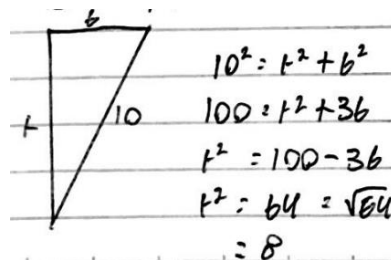 6
t
10
10² = t² + 6²
100 = t² + 36
t² = 100 - 36
t² = 64 = √64
= 8